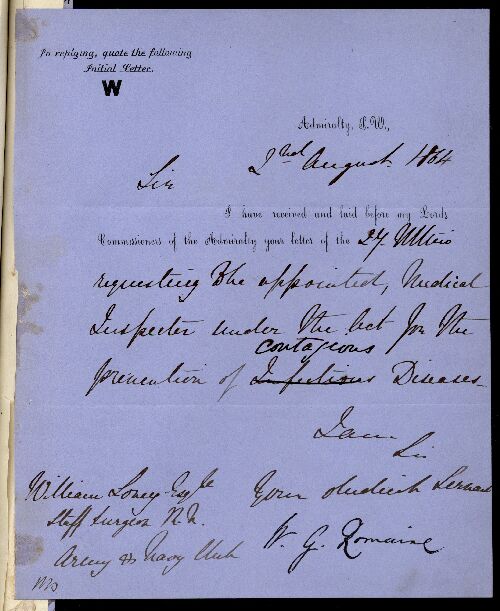 In replying, quote the following
Initial Letter.
W
Admiralty, S.W.,
2nd August 1864
Sir
I have received and laid before my Lords
Commissioners of the Admiralty your letter of the 27 Ultimo
requesting to be appointed, Medical
Inspector under the Act for the
contageous
prevention of Infectious Diseases
I am
Sir
Your obedient Servant
W. G. Romaine
William Loney Esqre
Staff Surgeon R.N.
Army & Navy Club